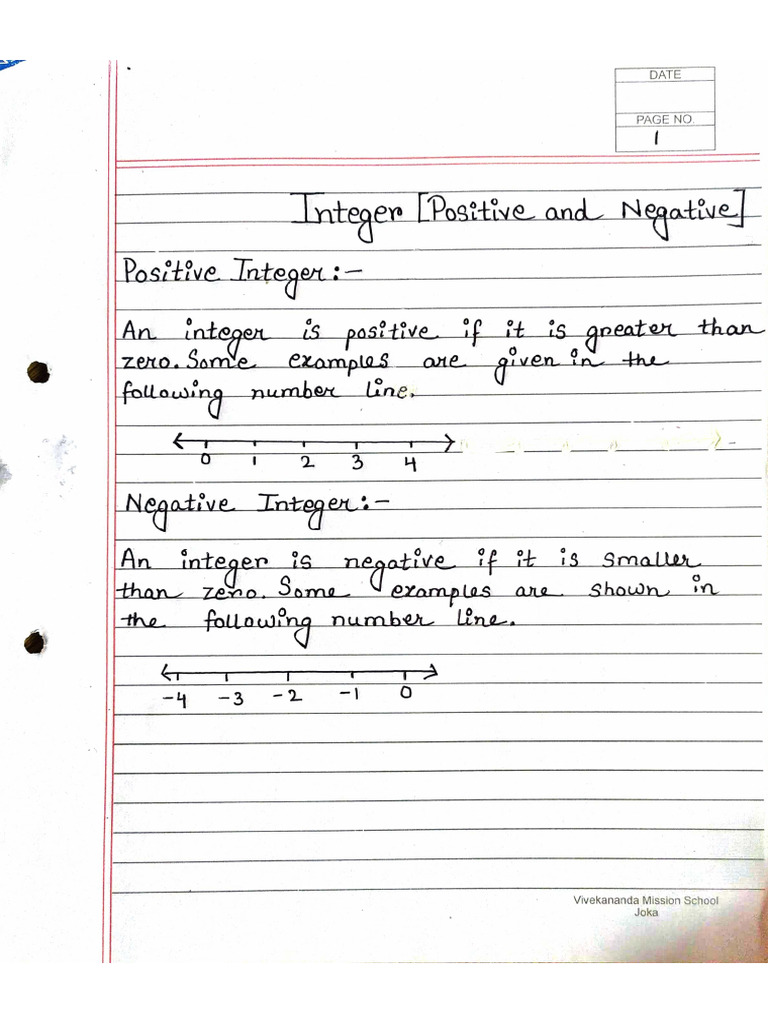 DATE
PAGE NO.
1
Integer [Positive and Negative]
Positive Integer:-
An integer is positive if it is greater than
zero. Some examples are given in the
following number line.
0 1 2 3 4
Negative Integer:-
An integer is negative if it is smaller
than zero. Some examples are shown in
the following number line.
-4 -3 -2 -1 0
Vivekananda Mission School
Joka